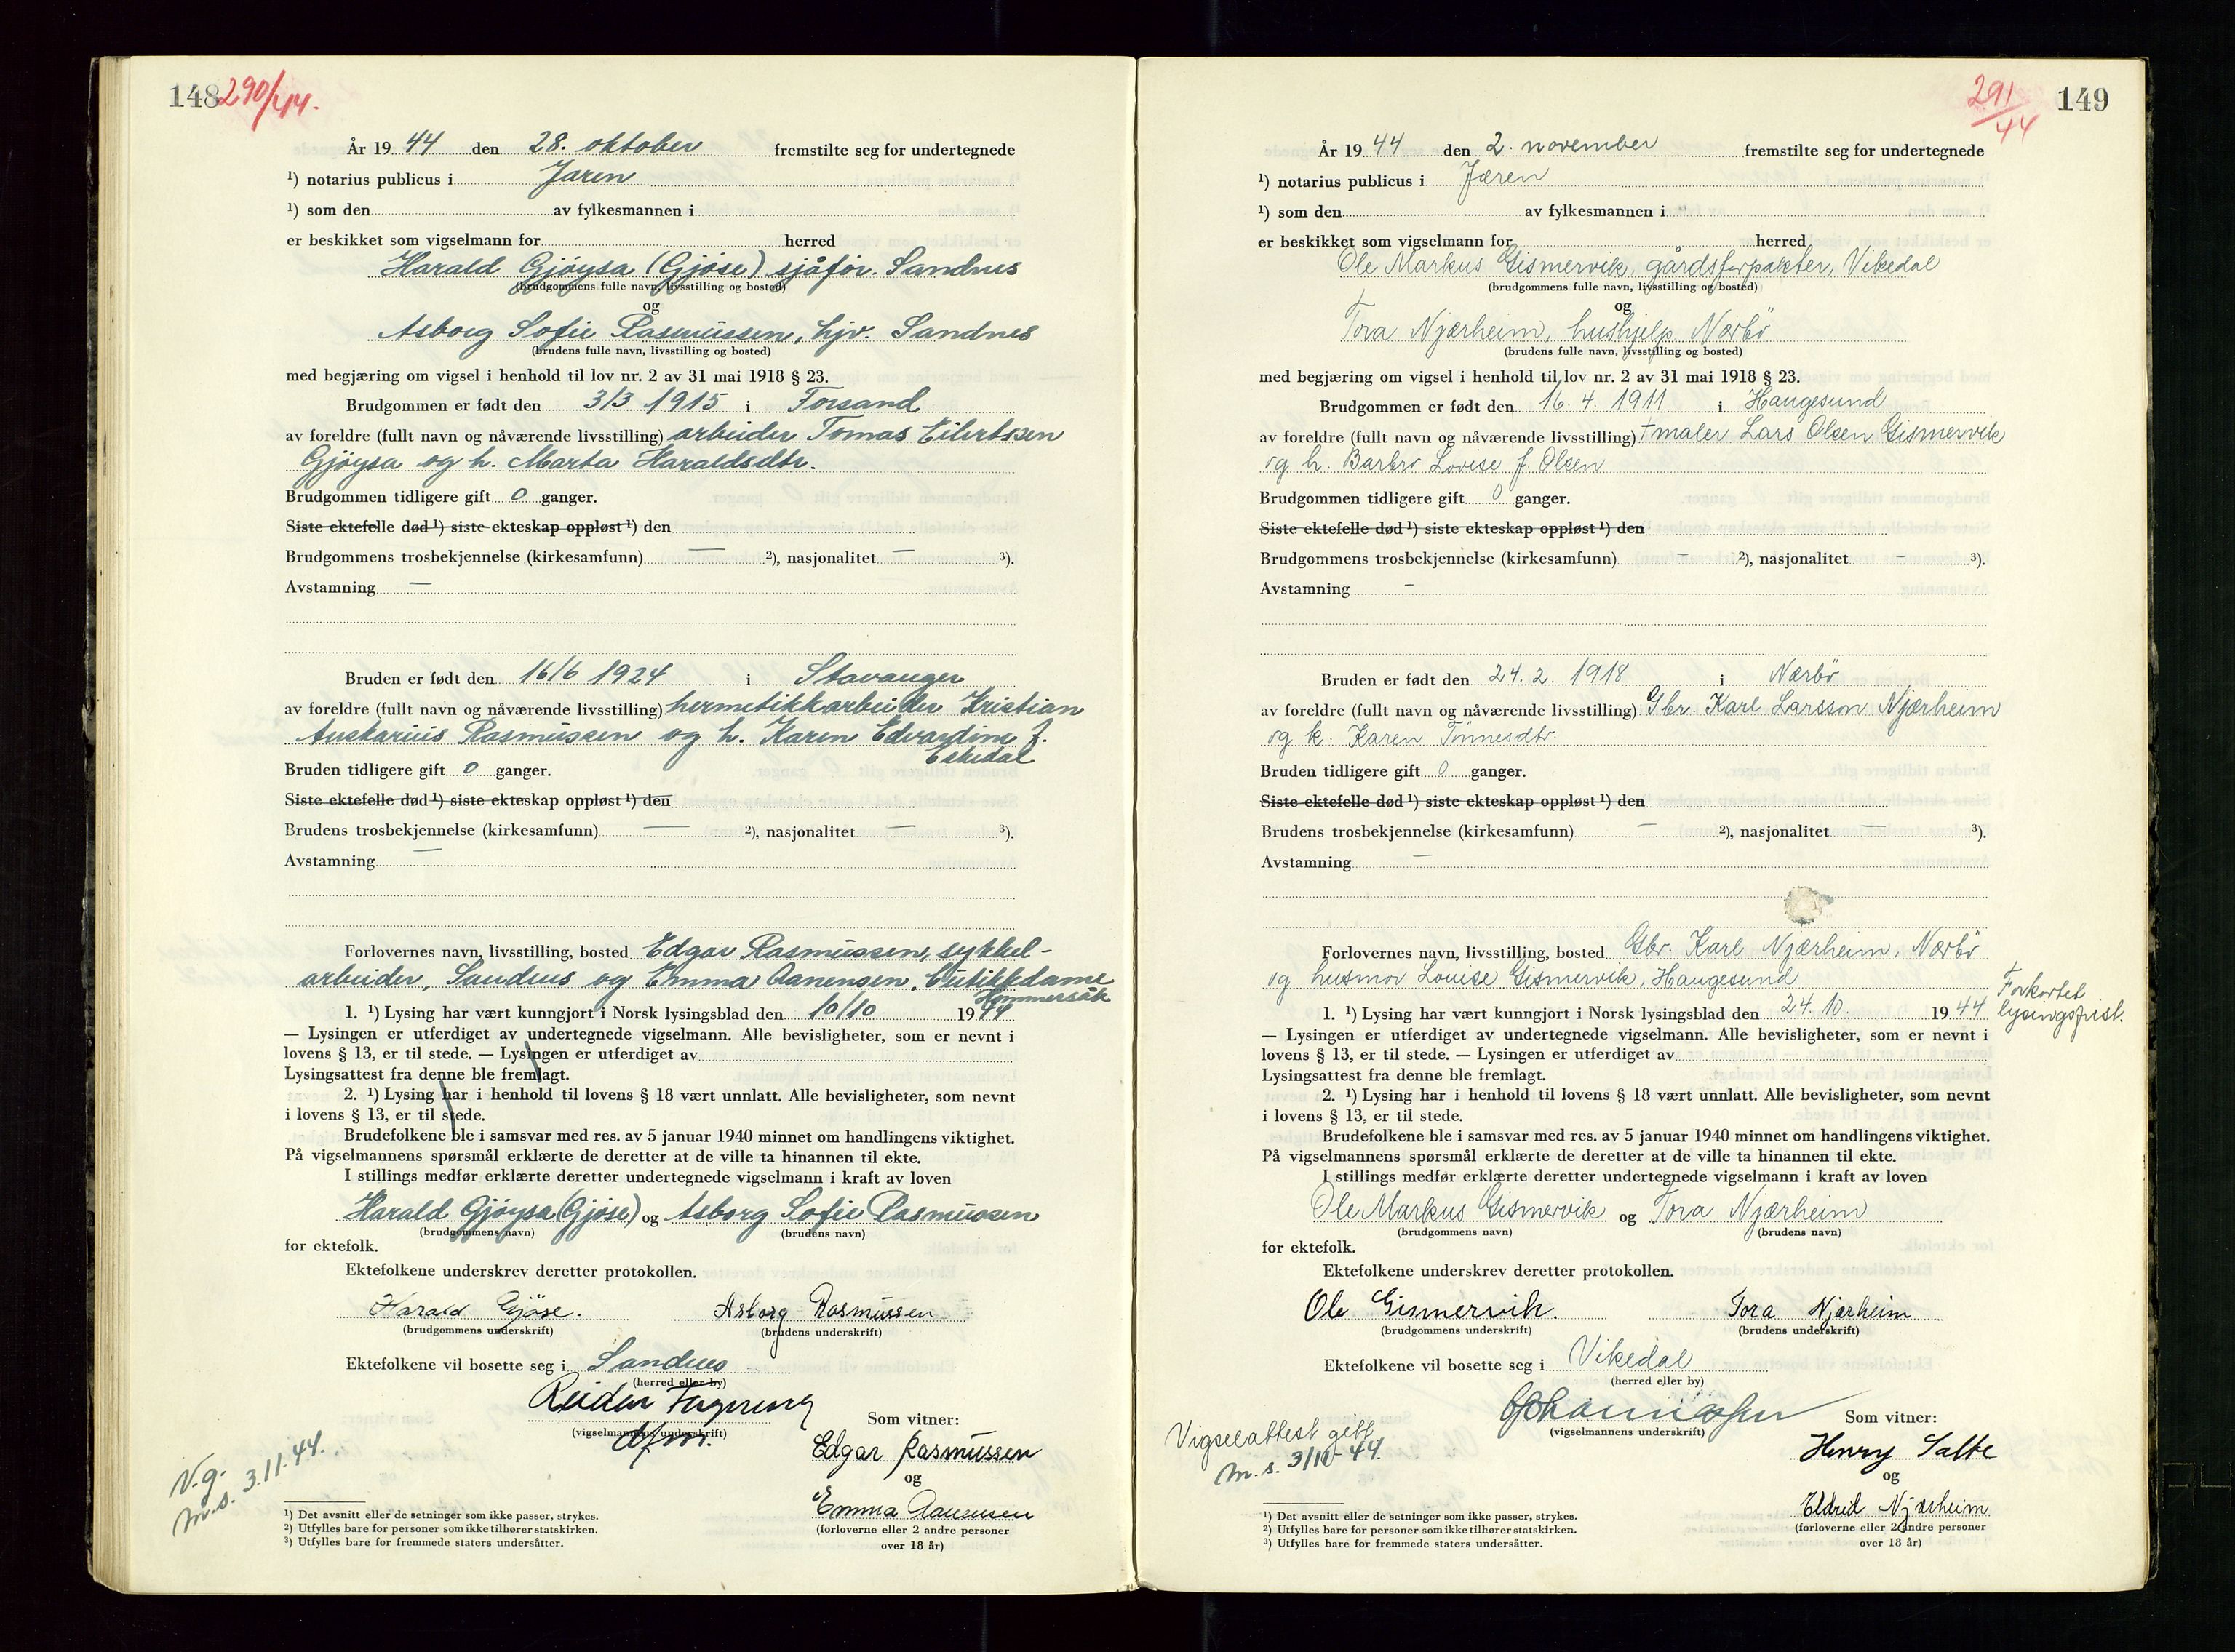 148 290/44.
År 19 44 den 28. oktober fremstilte seg for undertegnede
¹) notarius publicus i Jæren
¹) som den av fylkesmannen i
er beskikket som vigselmann for herred
Harald Gjøysa (Gjøse) sjåfør. Sandnes
(brudgommens fulle navn, livsstilling og bosted)
og
Asborg Sofie Rasmussen, hjv. Sandnes
(brudens fulle navn, livsstilling og bosted)
med begjæring om vigsel i henhold til lov nr. 2 av 31 mai 1918 § 23.
Brudgommen er født den 3/3 1915 i Forsand
av foreldre (fullt navn og nåværende livsstilling) arbeider Tomas Eilertssen
Gjøysa og h. Marta Haraldsdtr.
Brudgommen tidligere gift 0 ganger.
Siste ektefelle død ¹) siste ekteskap oppløst ¹) den
Brudgommens trosbekjennelse (kirkesamfunn) — ²), nasjonalitet — ³).
Avstamning —
Bruden er født den 16/6 1924 i Stavanger
av foreldre (fullt navn og nåværende livsstilling) hermetikkarbeider Kristian
Anskarius Rasmussen og h. Karen Edvardine f.
Eskedal
Bruden tidligere gift 0 ganger.
Siste ektefelle død ¹) siste ekteskap oppløst ¹) den
Brudens trosbekjennelse (kirkesamfunn) — ²), nasjonalitet — ³).
Avstamning —
Forlovernes navn, livsstilling, bosted Edgar Rasmussen, sykkel-
arbeider, Sandnes og Emma Aanensen, butikkdame
Hommersåk
1. ¹) Lysing har vært kunngjort i Norsk lysingsblad den 10/10 19 44
— Lysingen er utferdiget av undertegnede vigselmann. Alle bevisligheter, som er nevnt i
lovens § 13, er til stede. — Lysingen er utferdiget av
Lysingsattest fra denne ble fremlagt.
2. ¹) Lysing har i henhold til lovens § 18 vært unnlatt. Alle bevisligheter, som nevnt
i lovens § 13, er til stede.
Brudefolkene ble i samsvar med res. av 5 januar 1940 minnet om handlingens viktighet.
På vigselmannens spørsmål erklærte de deretter at de ville ta hinannen til ekte.
I stillings medfør erklærte deretter undertegnede vigselmann i kraft av loven
Harald Gjøysa (Gjøse) og Asborg Sofie Rasmussen
(brudgommens navn) (brudens navn)
for ektefolk.
Ektefolkene underskrev deretter protokollen.
Harald Gjøse. Asborg Rasmussen
(brudgommens underskrift) (brudens underskrift)
Ektefolkene vil bosette seg i Sandnes
(herred eller by)
Reidar
(vigselmannens underskrift)
Som vitner:
Edgar Rasmussen
og
Emma Aanensen
(forloverne eller 2 andre personer
over 18 år)
V.g.
m.s. 3.11.44.
¹) Det avsnitt eller de setninger som ikke passer, strykes.
²) Utfylles bare for personer som ikke tilhører statskirken.
³) Utfylles bare for fremmede staters undersåtter.
291/44 149
År 19 44 den 2. november fremstilte seg for undertegnede
¹) notarius publicus i Jæren
¹) som den av fylkesmannen i
er beskikket som vigselmann for herred
Ole Markus Gismervik, gårdsforpakter, Vikedal
(brudgommens fulle navn, livsstilling og bosted)
og
Tora Njærheim, hushjelp Nærbø
(brudens fulle navn, livsstilling og bosted)
med begjæring om vigsel i henhold til lov nr. 2 av 31 mai 1918 § 23.
Brudgommen er født den 16. 4. 1911 i Haugesund
av foreldre (fullt navn og nåværende livsstilling) † maler Lars Olsen Gismervik
og h. Barbro Lovise f. Olsen
Brudgommen tidligere gift 0 ganger.
Siste ektefelle død ¹) siste ekteskap oppløst ¹) den
Brudgommens trosbekjennelse (kirkesamfunn) — ²), nasjonalitet — ³).
Avstamning —
Bruden er født den 24. 2. 1918 i Nærbø
av foreldre (fullt navn og nåværende livsstilling) Gbr. Karl Larsson Njærheim
og h. Karen Tønnesdtr.
Bruden tidligere gift 0 ganger.
Siste ektefelle død ¹) siste ekteskap oppløst ¹) den
Brudens trosbekjennelse (kirkesamfunn) — ²), nasjonalitet — ³).
Avstamning —
Forlovernes navn, livsstilling, bosted Gbr. Karl Njærheim, Nærbø
og husmor Louise Gismervik, Haugesund
Forkortet
lysingsfrist.
1. ¹) Lysing har vært kunngjort i Norsk lysingsblad den 24. 10. 19 44
— Lysingen er utferdiget av undertegnede vigselmann. Alle bevisligheter, som er nevnt i
lovens § 13, er til stede. — Lysingen er utferdiget av
Lysingsattest fra denne ble fremlagt.
2. ¹) Lysing har i henhold til lovens § 18 vært unnlatt. Alle bevisligheter, som nevnt
i lovens § 13, er til stede.
Brudefolkene ble i samsvar med res. av 5 januar 1940 minnet om handlingens viktighet.
På vigselmannens spørsmål erklærte de deretter at de ville ta hinannen til ekte.
I stillings medfør erklærte deretter undertegnede vigselmann i kraft av loven
Ole Markus Gismervik og Tora Njærheim
(brudgommens navn) (brudens navn)
for ektefolk.
Ektefolkene underskrev deretter protokollen.
Ole Gismervik. Tora Njærheim
(brudgommens underskrift) (brudens underskrift)
Ektefolkene vil bosette seg i Vikedal
(herred eller by)
(vigselmannens underskrift)
Som vitner:
Henry Salte
og
Eldrid Njærheim
(forloverne eller 2 andre personer
over 18 år)
Vigselattest gitt
m.s. 3/11-44.
¹) Det avsnitt eller de setninger som ikke passer, strykes.
²) Utfylles bare for personer som ikke tilhører statskirken.
³) Utfylles bare for fremmede staters undersåtter.